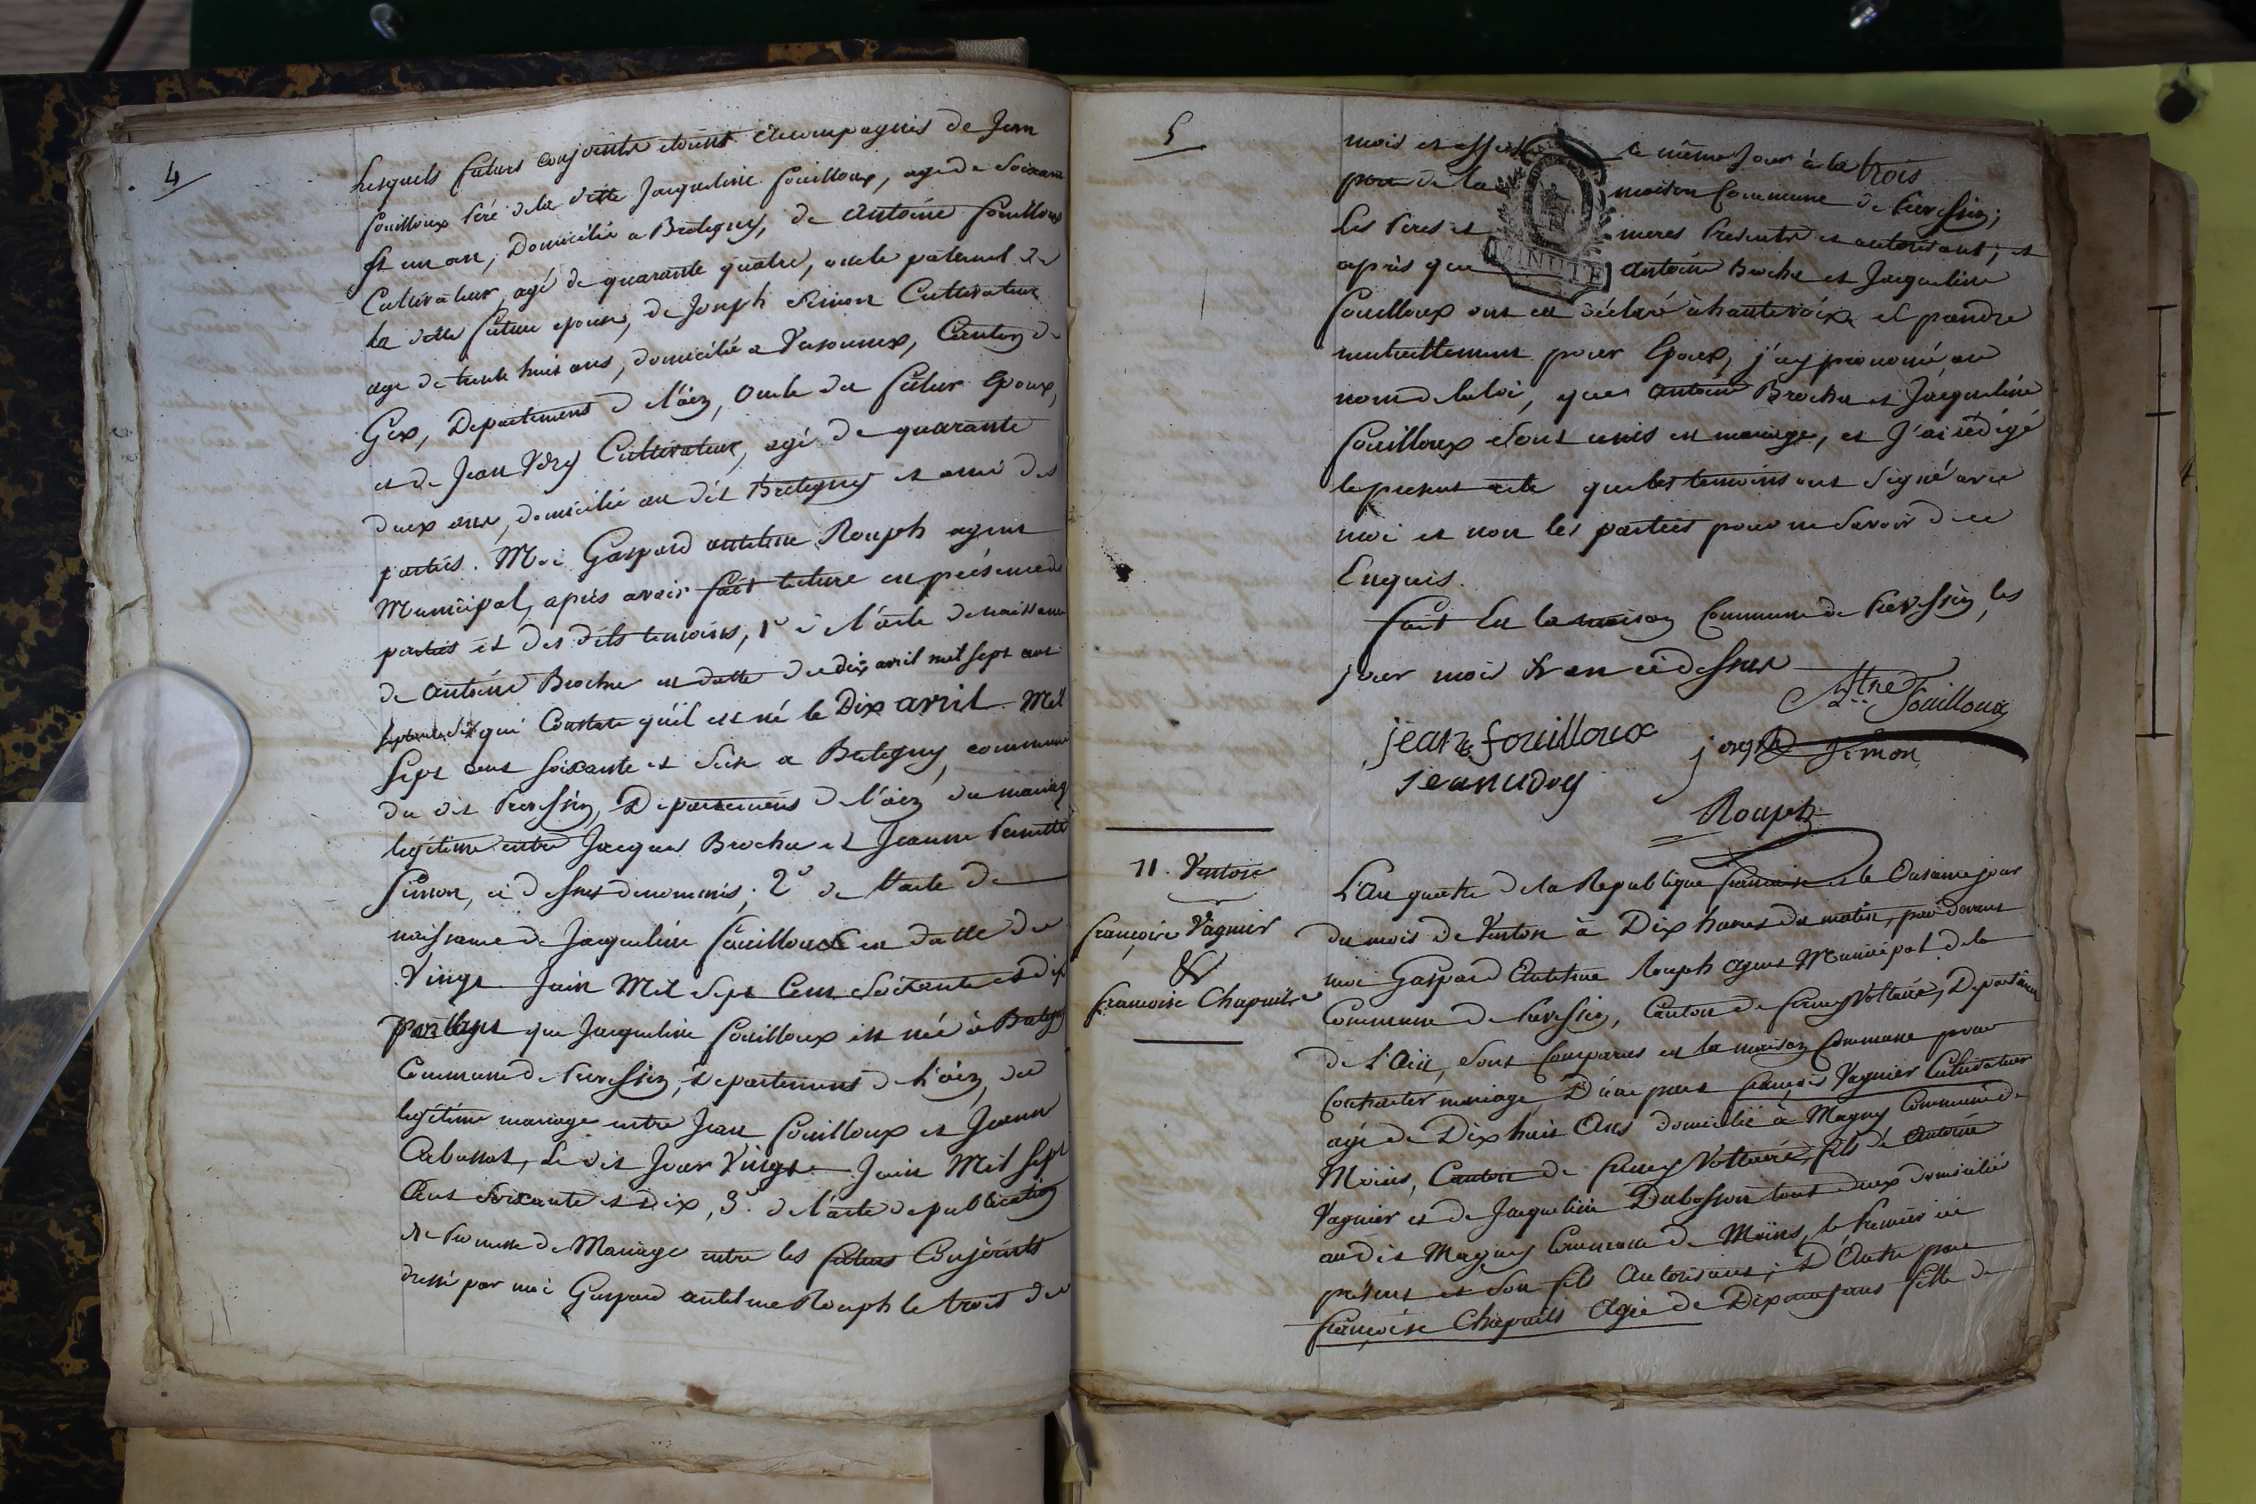 4
Lesquels futurs conjoints etoient accompagnés de Jean
fouilloux Pere de la ditte Jacqueline fouilloux, agé de Soixante
et un an, Domicilié a Bretegny, de antoine fouilloux
Cultivateur, agé de quarante quatre, oncle paternel de
la ditte future epouse, de Joseph Simon Cultivateur
agé de trente huit ans, domicilié a Versonnex, Canton de
Gex, Departement de l'ain, oncle du futur Epoux,
et de Jean Cultivateur, agé de quarante
deux ans, domicilié au dit Bretegny et ami des
parties. Moi Gaspard antelme Rouph agent
Municipal, après avoir fait lecture en présence des
parties et des dits temoins, 1º de l'acte de naissance
de antoine Broche en datte du dix avril mil sept cent
qui Constate qu'il est né le Dix avril Mil
Sept cent soixante et Seize a Bretegny, commune
du dit Prevessin, Departement de l'ain du mariage
legitime entre Jacques Broche et Jeanne Pernette
Simon, ci dessus denommés; 2º de l'acte de
naissance de Jacqueline fouilloux en datte du
Vingt Juin Mil Sept Cent Soixante et dix
que Jacqueline fouilloux est née à Bretegny
Commune de Prevessin, departement de l'ain, du
legitime mariage entre Jean fouilloux et Jeanne
, le dit Jour Vingt Juin Mil Sept
Cent Soixante et Dix, 3º de l'acte de publication
de Promesse de Mariage entre les futurs Conjoints
dressé par moi Gaspard antelme Rouph le trois du
5
mois et affiché le même Jour à la trois
porte de la maison Commune de Prevessin;
Les Peres et meres Presents et autorisant; et
après que antoine Broche et Jacqueline
fouilloux ont eu déclaré à haute voix se prendre
mutuellement pour Epoux, j'ay prononcé au
nom de la loi, que antoine Broche et Jacqueline
fouilloux sont unis en mariage, et J'ai rédigé
le present acte que les temoins ont signé avec
moi et non les parties pour ne Savoir de ce
Enquis.
fait En la maison Commune de Prevessin, les
jour mois & an ci dessus
Antne Fouilloux
jean fouilloux
joseph Simon
Rouph
11. Ventose
françois Vagnier
&
françoise Chapuits
L'An quatre de la Republique francaise et le Onsieme jour
du mois de Ventose à Dix heures du matin, par devant
moi Gaspard Antelme Rouph agent Municipal de la
Commune de Prevessin, Canton de ferney Voltaire, Departement
de L'Ain, sont Comparus en la maison Commune pour
Contracter mariage D'une part françois Vagnier Cultivateur
agé de Dix huit Ans domicilié à Magny Commune de
Moëns, Canton de ferney Voltaire, fils de Antoine
Vagnier et de Jacqueline Dubosson tous deux domiciliés
au dit Magny Commune de Moëns, le Premier ici
présent et Son fils Autorisant; D'Autre part
françoise Chapuits Agée de Dix ans fille de